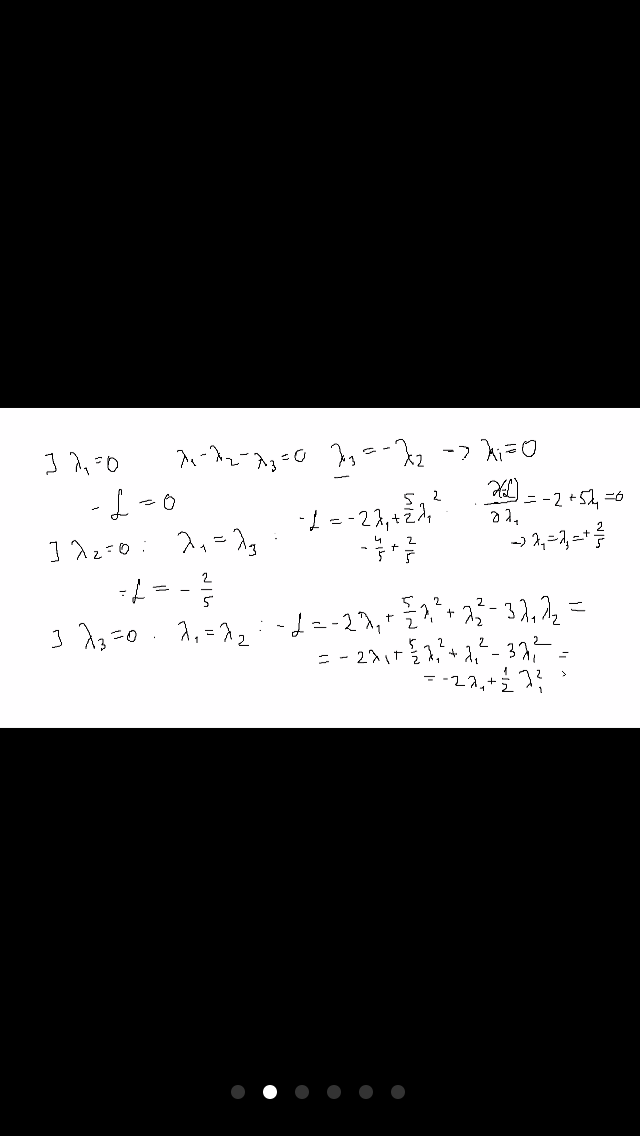 ∃ λ₁=0 λ₁-λ₂-λ₃=0 λ₃=-λ₂ → λᵢ=0
- ℒ = 0
∃ λ₂=0 : λ₁=λ₃ : -ℒ = -2λ₁ + 5/2 λ₁² . ∂(-ℒ)/∂λ₁ = -2+5λ₁=0
- 4/5 + 2/5 → λ₁=λ₃=+2/5
-ℒ = - 2/5
∃ λ₃=0 . λ₁=λ₂ : -ℒ = -2λ₁ + 5/2 λ₁² + λ₂² - 3λ₁λ₂ =
= -2λ₁ + 5/2 λ₁² + λ₁² - 3λ₁² =
= -2λ₁ + 1/2 λ₁²